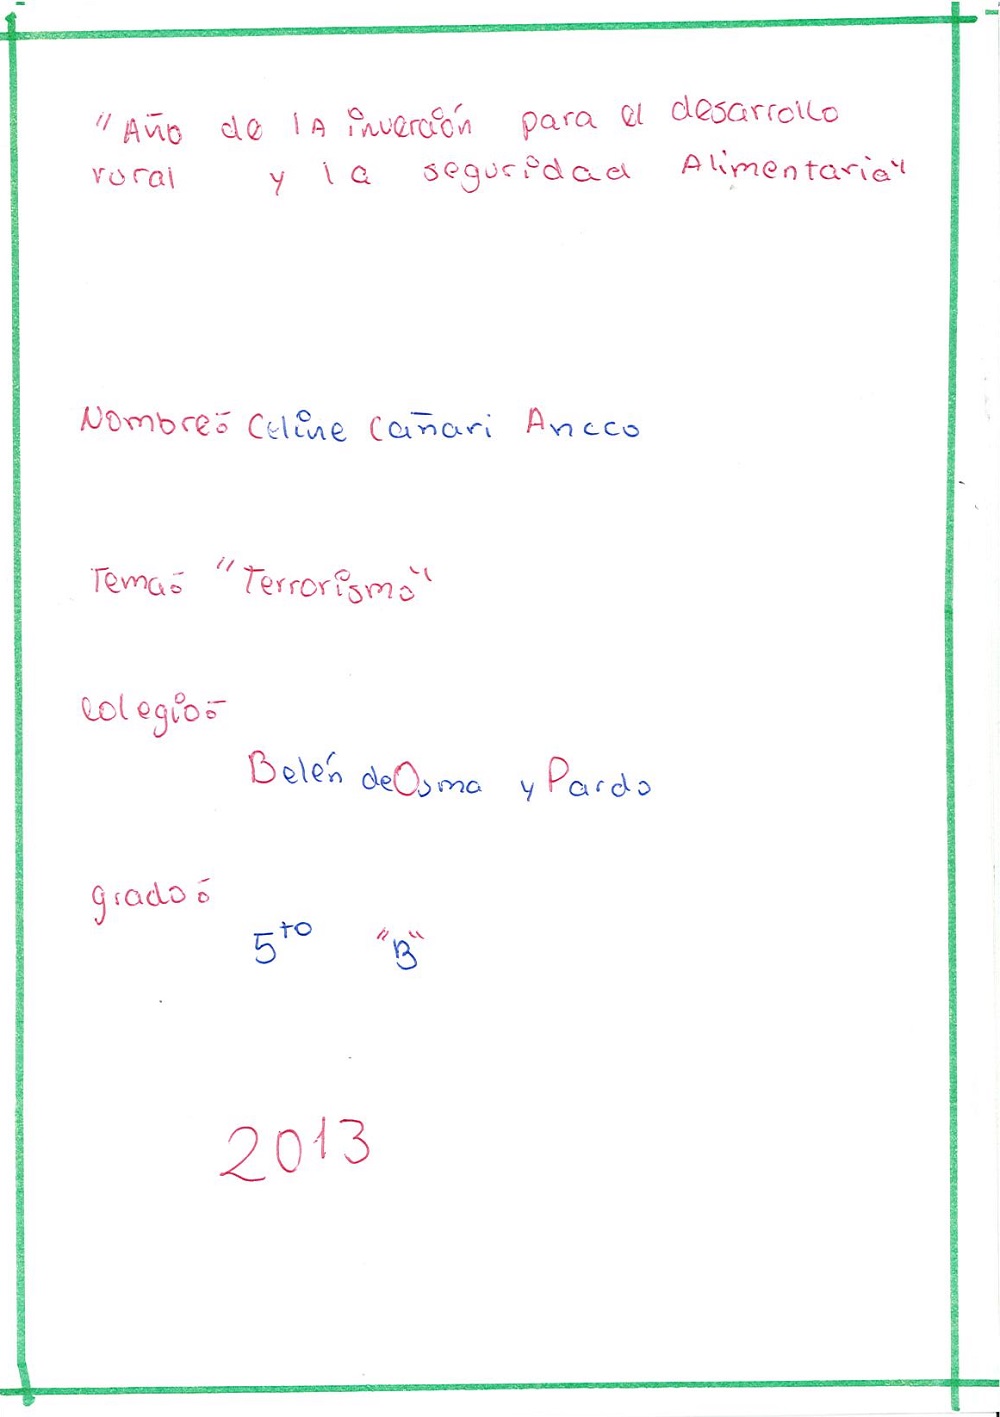 "Año de lA inverción para el desarrollo
rural y la seguridad Alimentaria"
Nombre:- Celine Cañari Ancco
Tema:- "Terrorismo"
colegio:-
Belén de Osma y Pardo
grado:-
5to "B"
2013